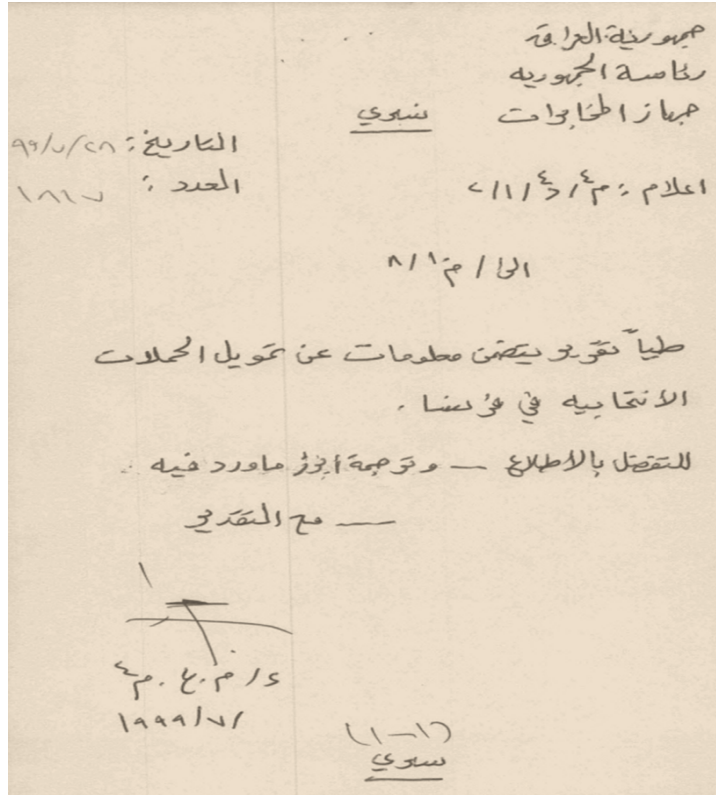 جمهورية العراق
رئاسة الجمهوريه
جهاز المخابرات
سري
التاريخ: ٩٩/٧/٢٨
العدد: ١٨١٧
اعلام: م٤/د٤/١/٢
الى/ م١/٨
طياً تقرير يتضمن معلومات عن تمويل الحملات
الانتخابيه في فرنسا.
للتفضل بالاطلاع — وترجمة ابرز ماورد فيه.
— مع التقدير
١٩٩٩/٧/
(١-١)
سري